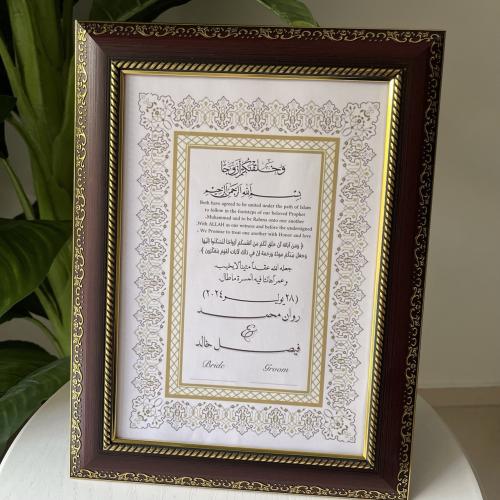 وخلقنكم أزوجا
بسم الله الرحمن الرحيم
Both have agreed to be united under the path of Islam
to follow in the footsteps of our beloved Prophet
Muhammad and to be Rahma unto one another.
With ALLAH as our witness and before the undersigned,
We Promise to treat one another with Honor and love.
﴿ ومن آياته أن خلق لكم من أنفسكم أزواجا لتسكنوا إليها
وجعل بينكم مودة ورحمة إن في ذلك لآيات لقوم يتفكرون ﴾
جعله الله عقدا متينا لا يخيب
وعمرا هانئا فيه المسرة ما طال
(٢٨ يوليو ٢٠٢٤)
روان محمد
&
فيصل خالد
Bride Groom